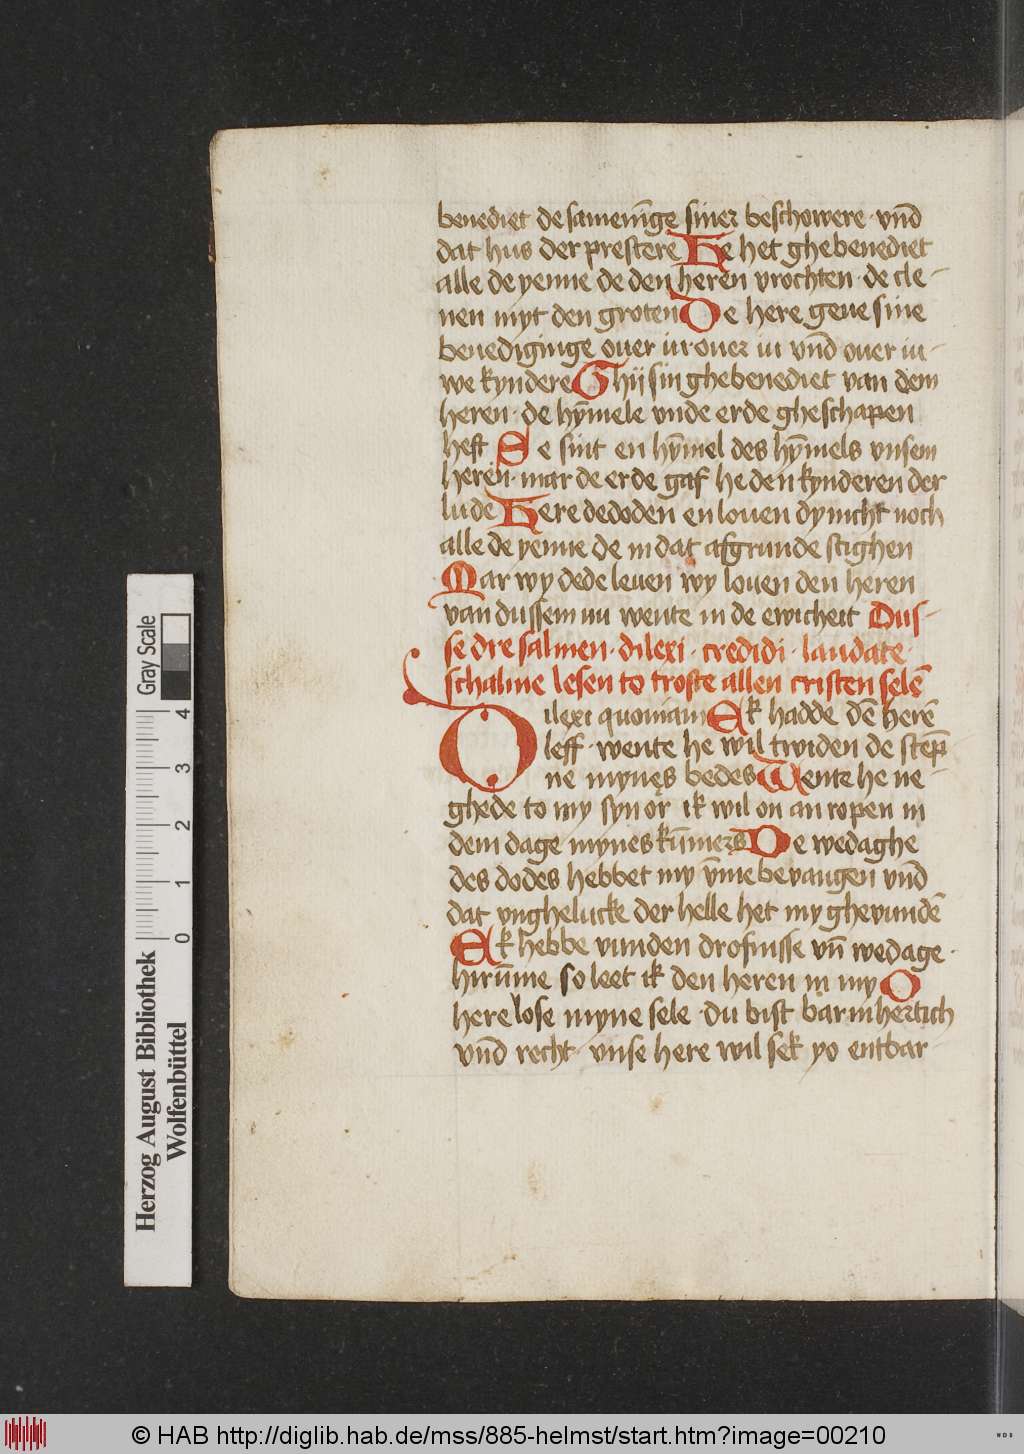 benediet de samenīge siner beschowere · vnd̄
dat hus der prestere He het ghebenediet
alle de yenne de den heren vrochten · de cle-
nen myt den groten De here geue sine
benediginge ouer iu · ouer iu vnd̄ ouer iu-
we kyndere Ghij sin ghebenediet van dem
heren · de hȳmele vnde erde gheschapen
heft Se sint en hȳmel des hȳmels vnsem
heren · mar de erde gaf he den kynderen der
lude Here de doden en louen dy nicht noch
alle de yenne de in dat afgrunde stighen
Mar wy de de leuen wy louen den heren
van dussem nu wente in de ewicheit Dus-
se dre salmen · dilexi · credidi · laudate ·
schalme lesen to troste allen cristen selē
Dilexi quoniam Ek hadde dē herē
leff · wente he wil twiden de stēp
ne mynes bedes Wente he ne-
ghede to my syn or ik wil on an ropen in
dem dage mynes kūmers De wedaghe
des dodes hebbet my v̄me bevangen vnd̄
dat vnghelucke der helle het my ghevundē
Ek hebbe vunden drofnisse vn̄ wedage ·
hirūme so leet ik den heren in my O
here lose myne sele · du bist barmhertich
vnd̄ recht · vnse here wil sek yo entbar-
Herzog August Bibliothek
Wolfenbüttel
0 1 2 3 4
Gray Scale
© HAB http://diglib.hab.de/mss/885-helmst/start.htm?image=00210
WDB